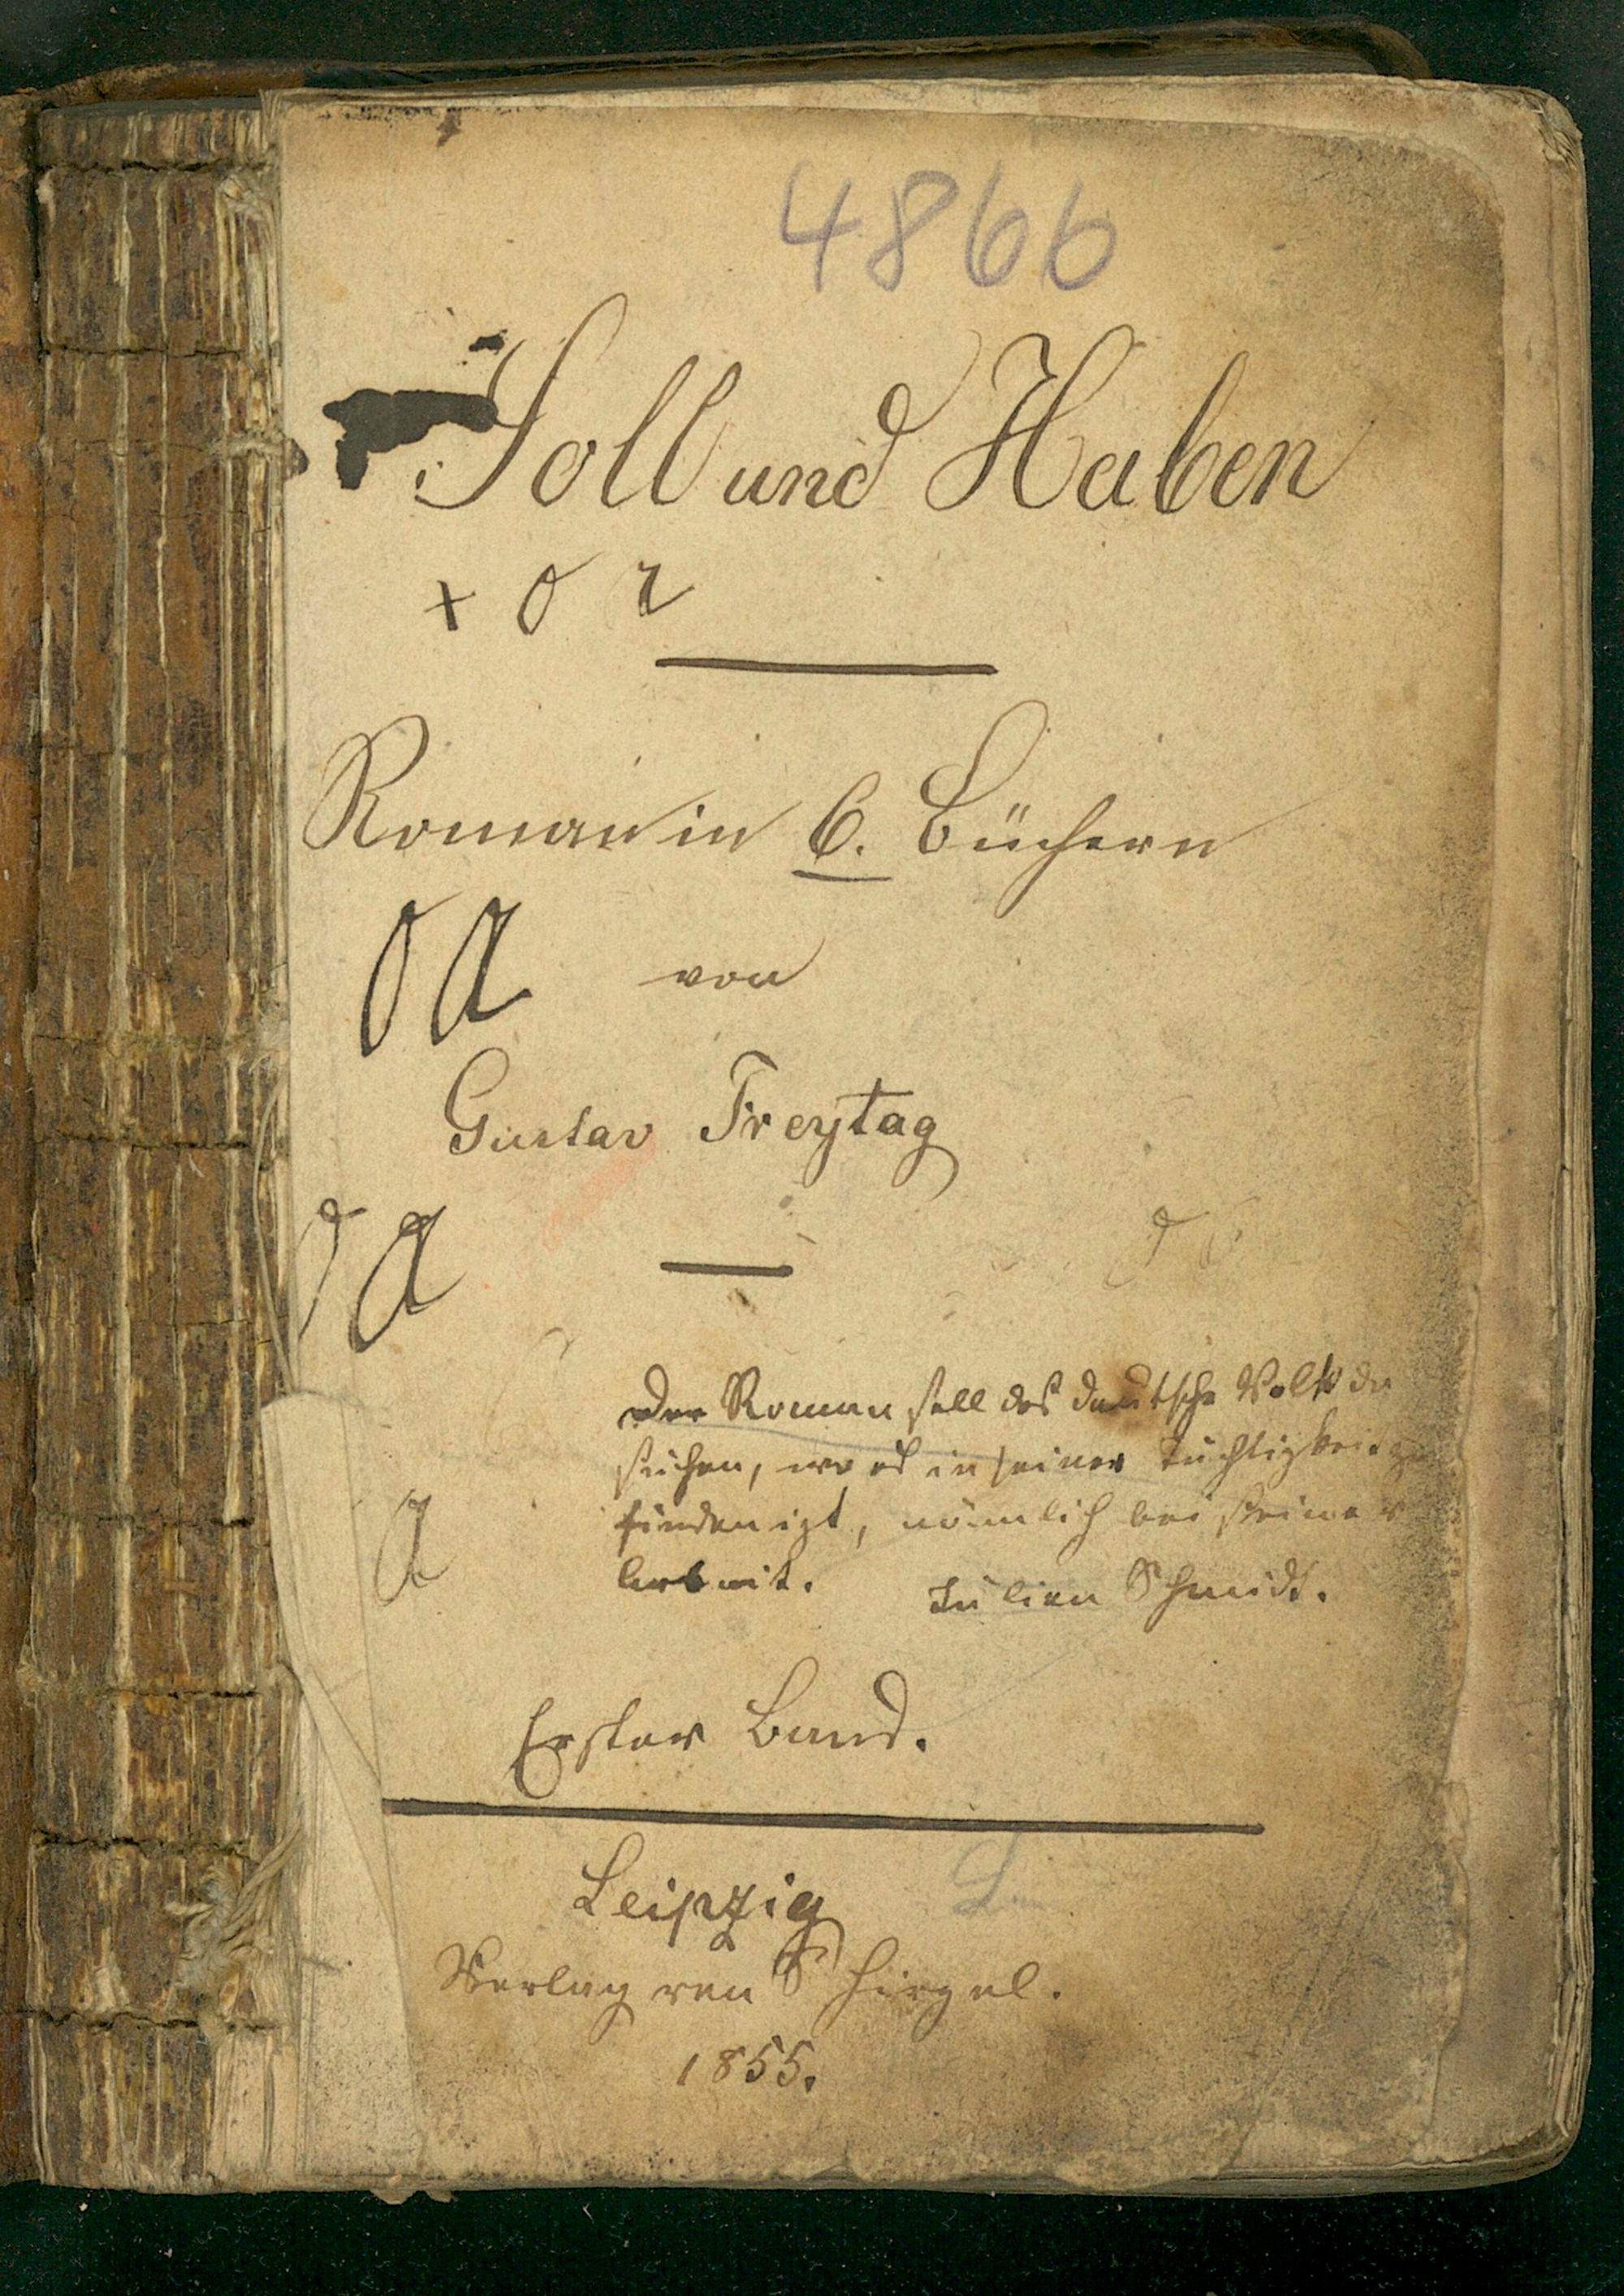 4866
Soll und Haben
+ O r
Roman in 6. Büchern
O A von
Gustav Freytag
A
Der Roman soll das deutsche Volk da
suchen, wo es in seiner Tüchtigkeit zu
finden ist, nämlich bei seiner
Arbeit. Julian Schmidt.
A
Erster Band.
Leipzig
Verlag von S Hirzel.
1855.